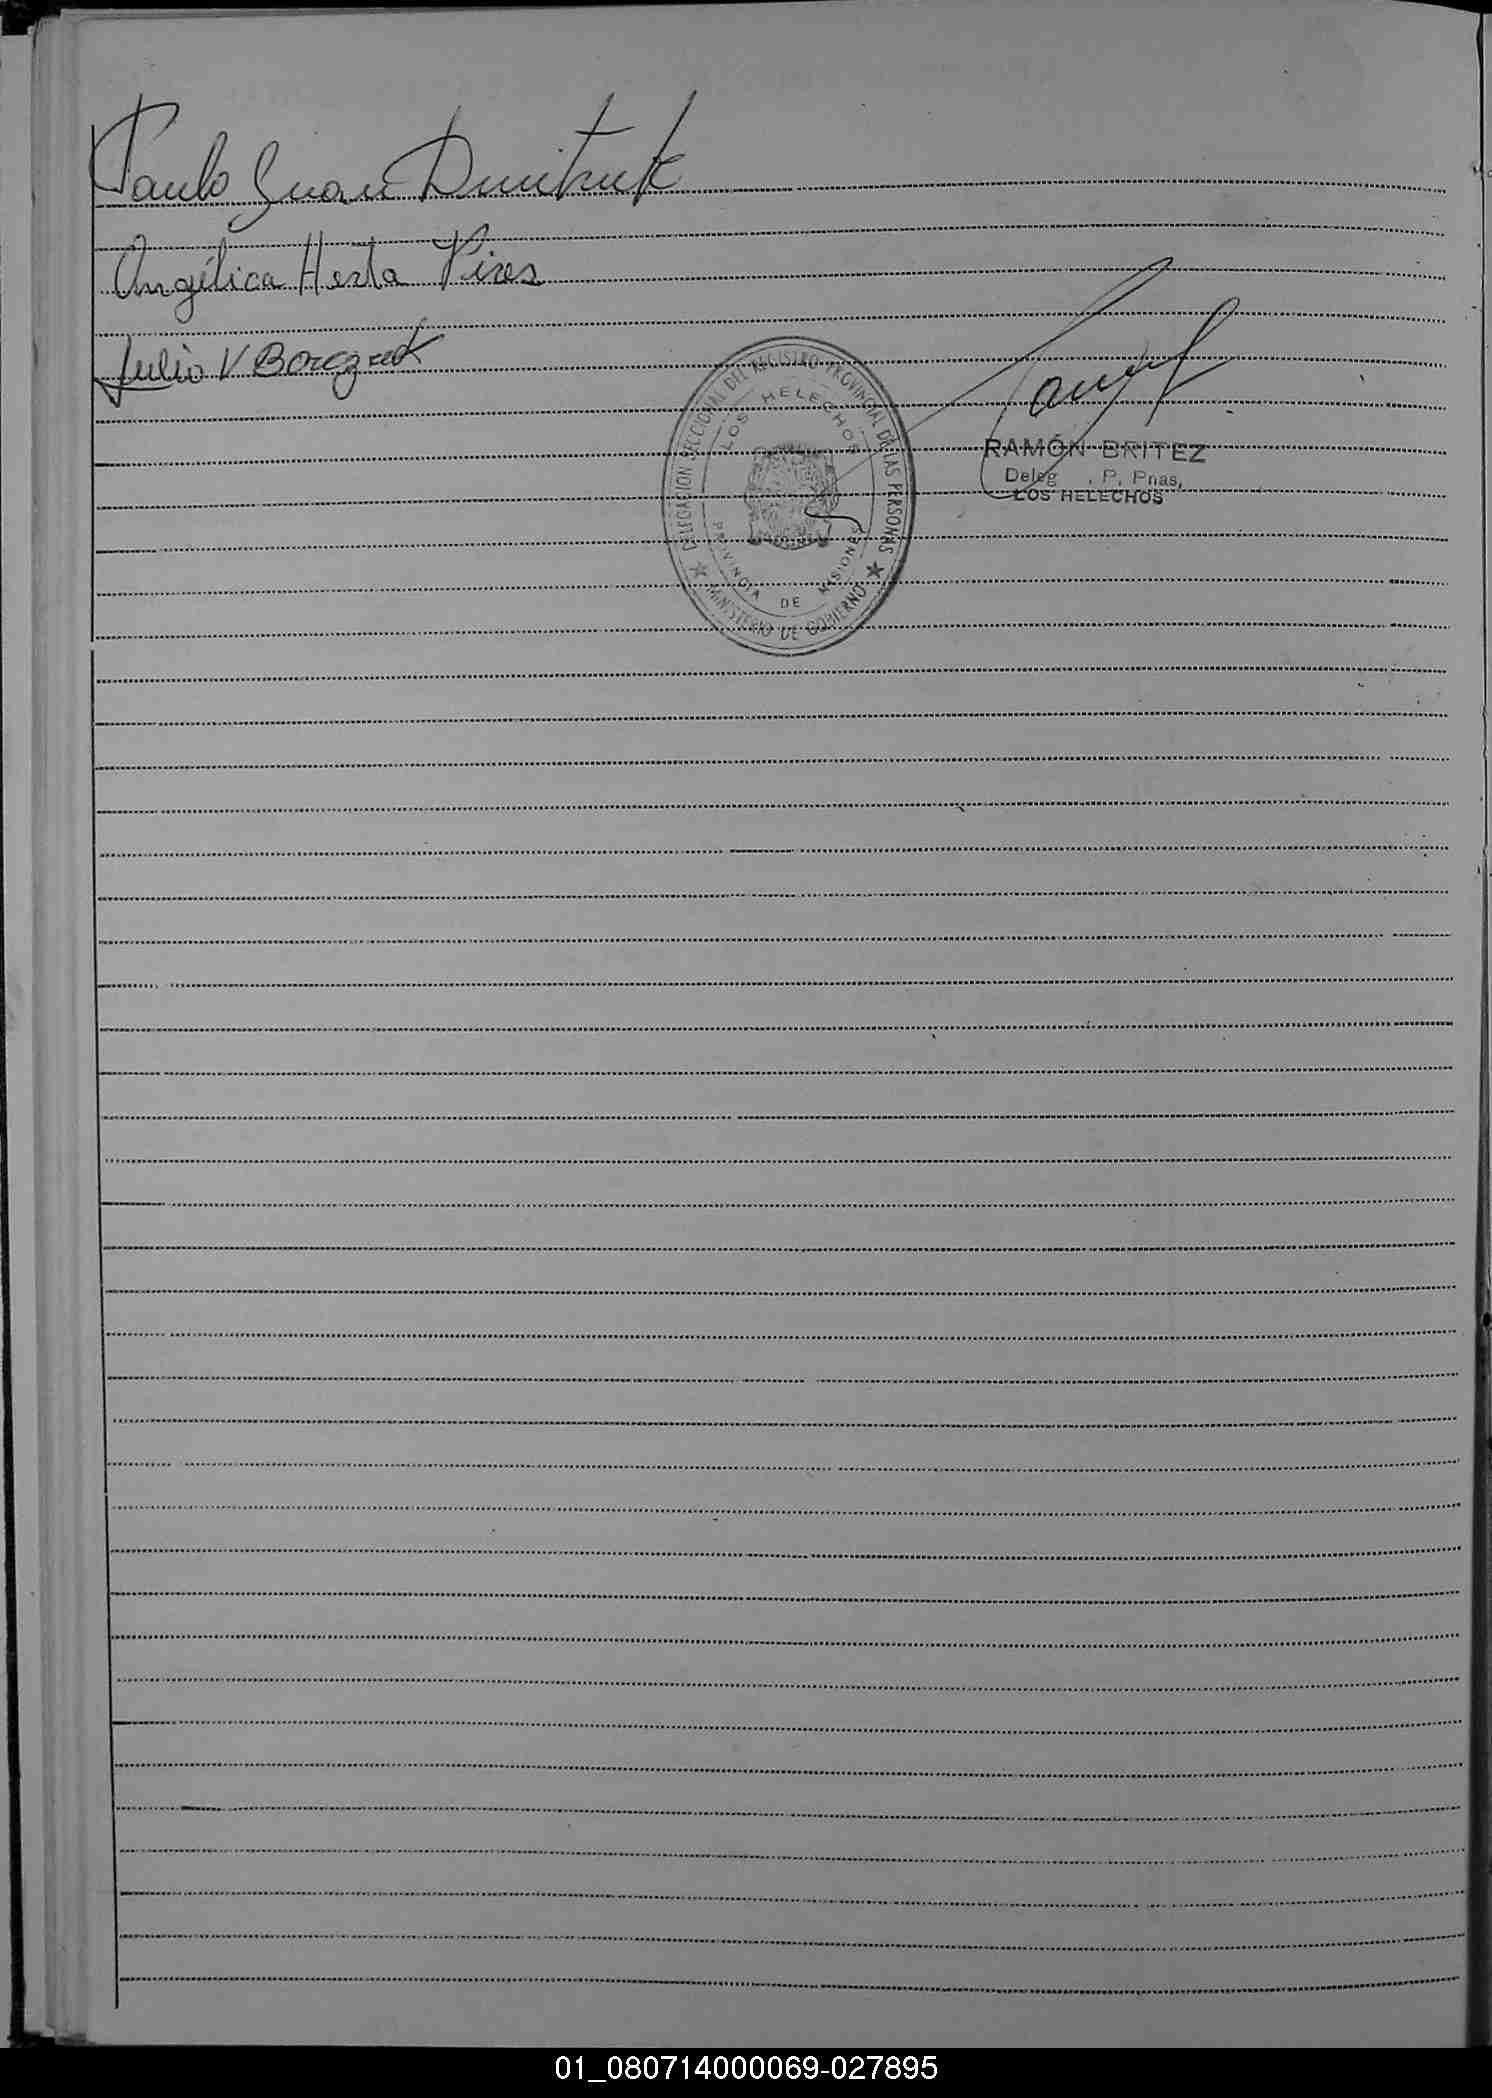 Paulo Juan Dmitruk
Angélica Herta Pires
Julio V Borczuk
DELEGACION SECCIONAL DEL REGISTRO PROVINCIAL DE LAS PERSONAS
LOS HELECHOS
PROVINCIA DE MISIONES
★ MINISTERIO DE GOBIERNO ★
RAMÓN BRITEZ
Deleg . P. Pnas,
LOS HELECHOS
01_080714000069-027895